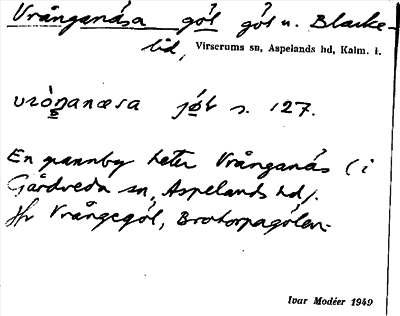 Vrånganäsa göl göl n. Blacke-
lid, Virserums sn, Aspelands hd, Kalm. l.
vrònanæsa jö́l s. 127.
En grannby heter Vrånganäs (i
Gårdveda sn, Aspelands hd).
Jfr Vrångegöl, Brotorpagölen.
Ivar Modéer 1949